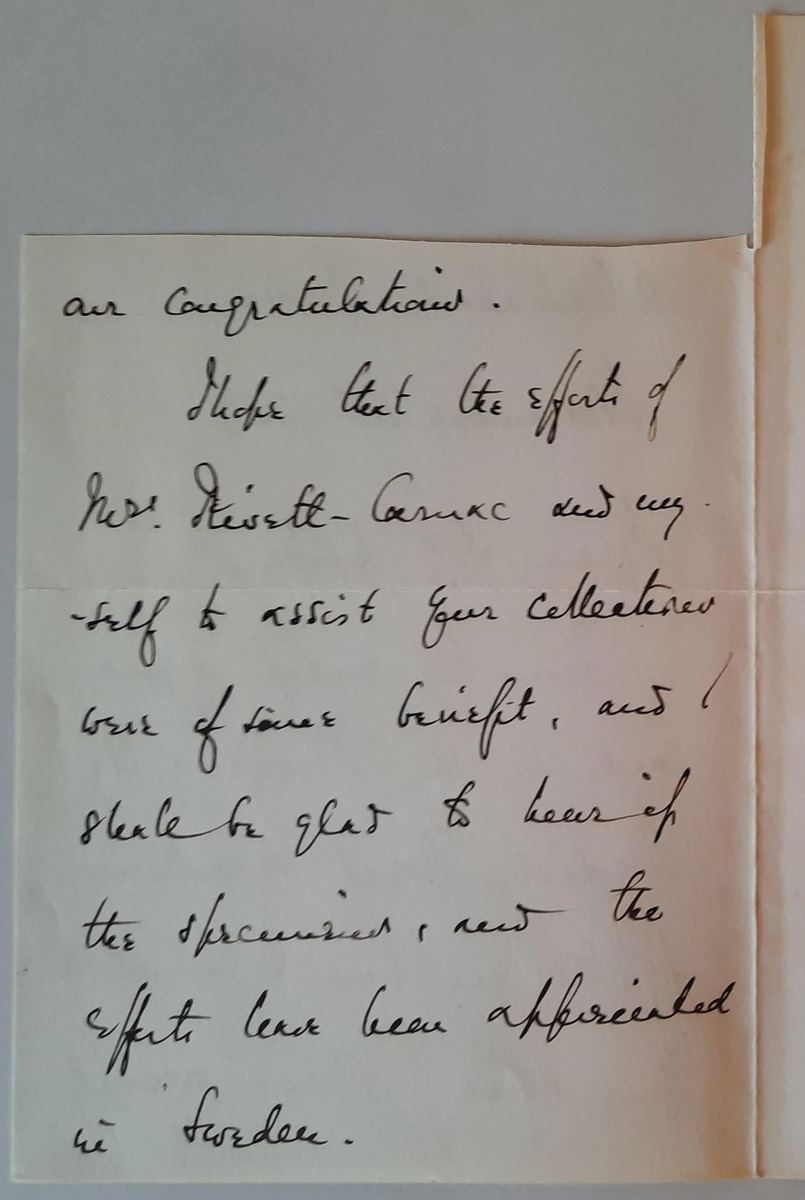 our congratulations.
I hope that the efforts of
Mrs. Rivett-Carnac and my
-self to assist your collections
were of some benefit, and I
shall be glad to hear if
the specimens, and the
efforts have been appreciated
in Sweden.